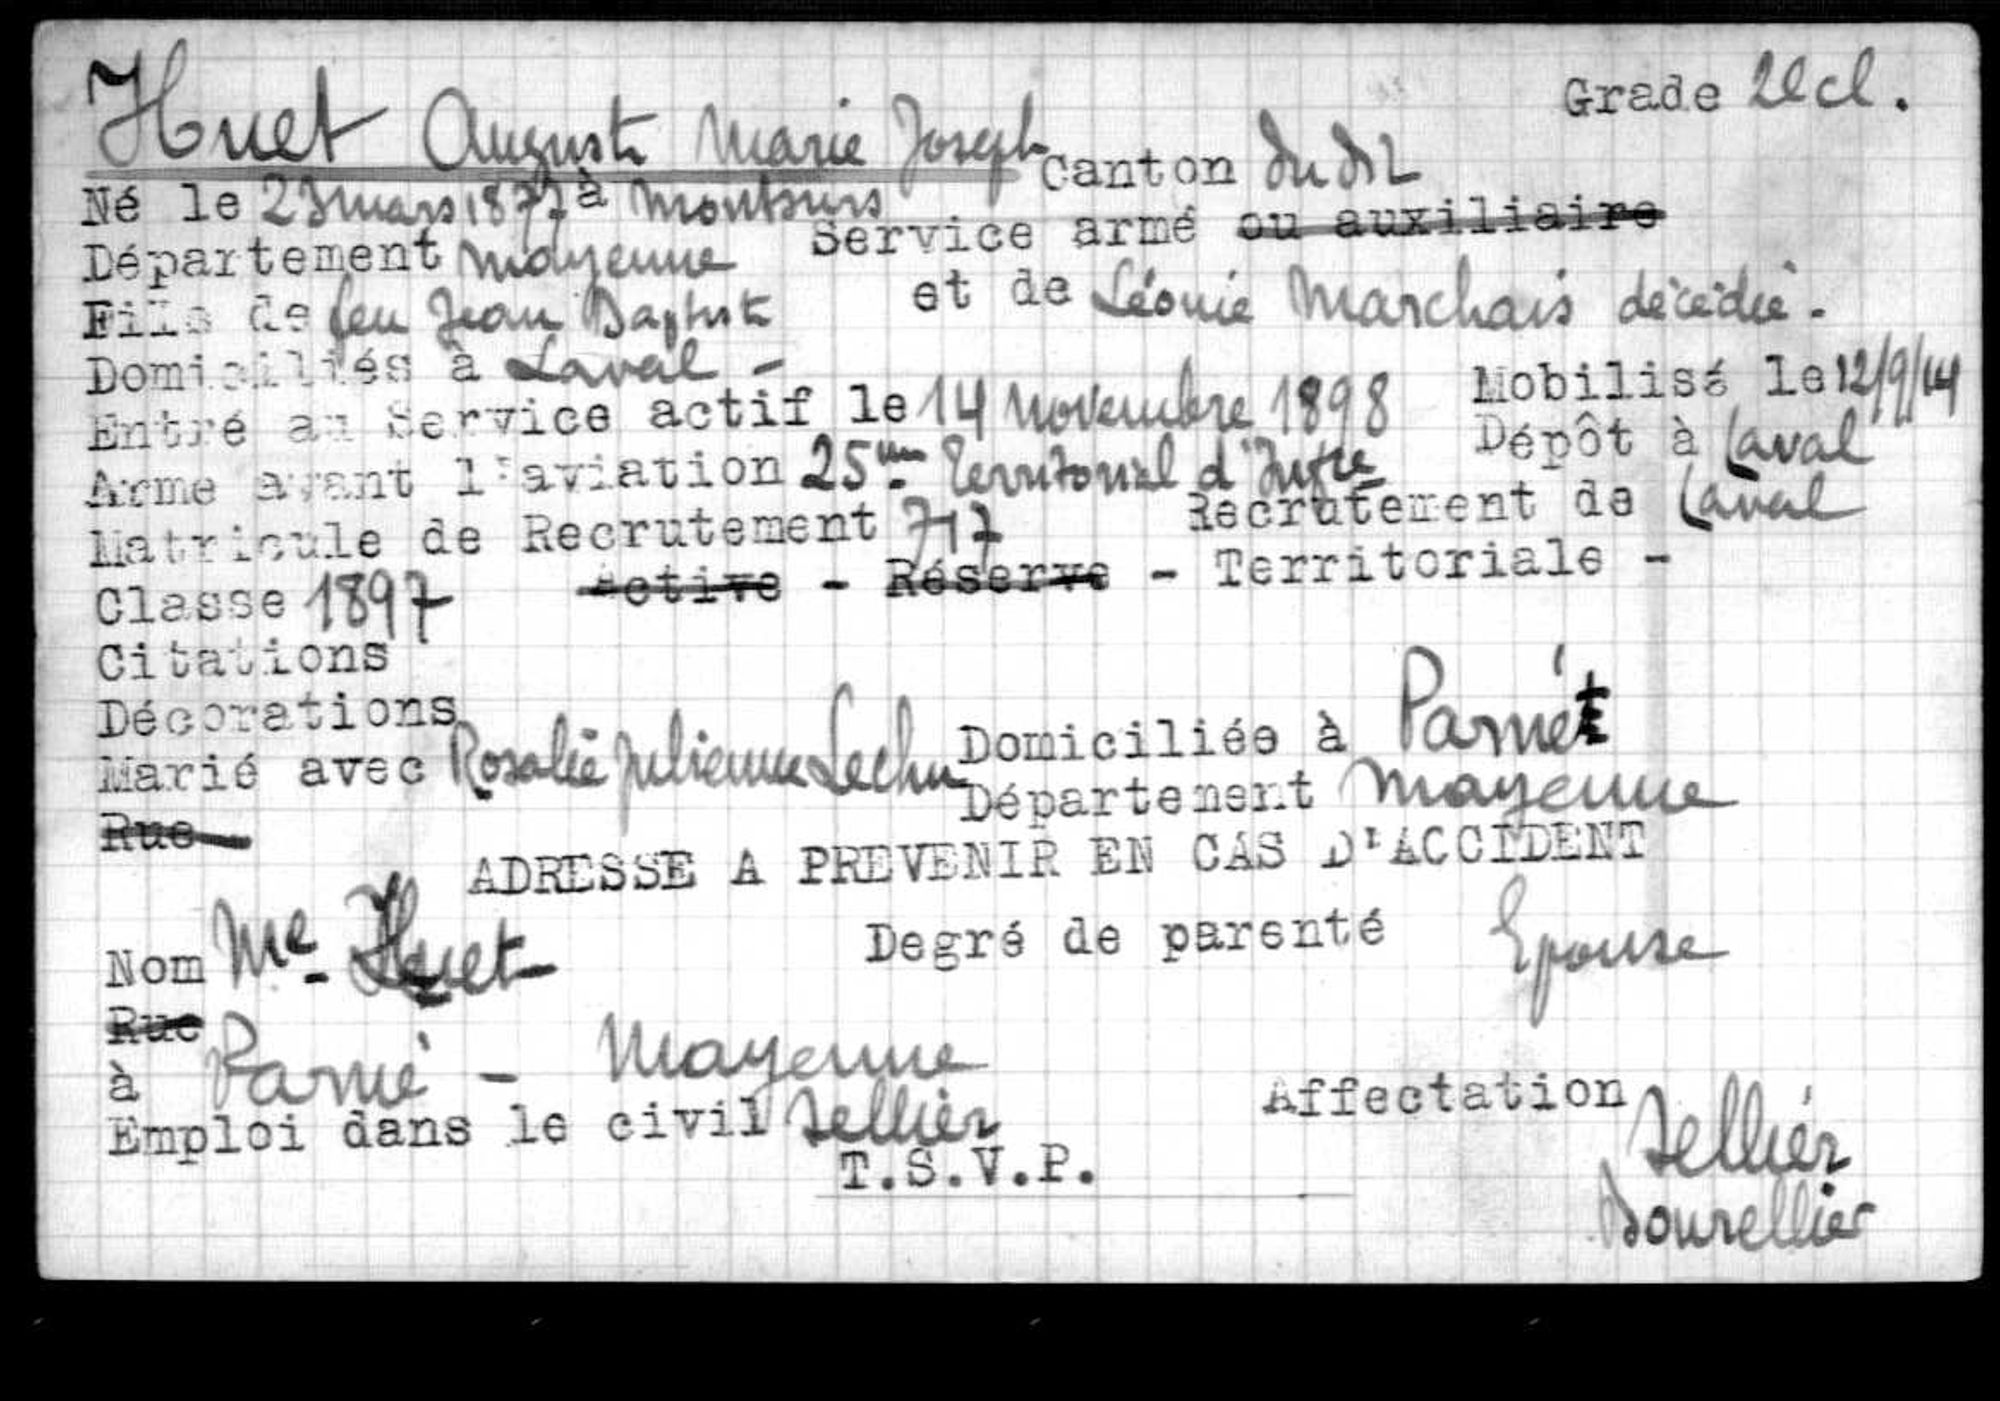 Grade 2e cl.
Huet Auguste Marie Joseph Canton du dit
Né le 23 mars 1877 à Montsurs
Service armé ou auxiliaire
Département Mayenne
Fils de feu Jean Baptiste et de Léonie Marchais décédée.
Domiciliés à Laval - Mobilisé le 12/9/14
Entré au Service actif le 14 Novembre 1898 Dépôt à Laval
Arme avant l'aviation 25me Territorial d'Inftie
Matricule de Recrutement 717 Recrutement de Laval
Classe 1897 Active - Réserve - Territoriale -
Citations
Décorations
Marié avec Rosalie Julienne Domiciliée à Parné
Département Mayenne
Rue
ADRESSE A PREVENIR EN CAS D'ACCIDENT
Nom Me Huet Degré de parenté Epouse
Rue
à Parné - Mayenne
Emploi dans le civil Sellier Affectation Sellier
T.S.V.P. Bourellier